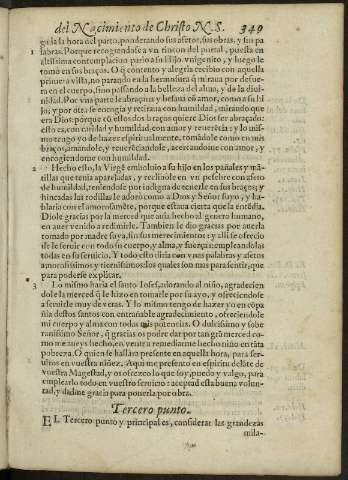 del Nacimiento de Christo N.S. 349
gada la hora del parto, ponderando sus afetos, sus obras, y las pa
1 labras. Porque recogiendose a vn rincon del portal, puesta en
altissima contemplacion pario a su Hijo vnigenito, y luego le
tomó en sus braços. O q̃ contento y alegria recibio con aquella
primera vista, no parando en la hermosura q̃ miraua por defue
ra en el cuerpo, sino passando a la belleza del alma, y de la diui-
nidad. Por vna parte le abraçaua y besaua cõ amor, como a su hi
jo; y por otra se encogia y retiraua con humildad, mirando que
era Dios: porque cõ estos dos braços quiere Dios ser abraçado:
esto es, con caridad y humildad, con amor y reuerẽcia: y lo mis-
mo tengo yo de hazer espiritualmente, tomãdole como en mis
braços, amandole, y reuerẽciandole, acercandome con amor, y
encogiendome con humildad.
2 Hecho esto, la Virgẽ emboluio a su hijo en los pañales y mã-
tillas que tenia aparejadas, y reclinóle en vn pesebre con afeto
de humildad, teniendose por indigna de tenerle en sus braços; y
hincadas las rodillas le adoró como a Dios y Señor suyo, y ha-
blaria con el amorosamẽte, porque estaua cierta que la entẽdia.
Diole gracias por la merced que auia hecho al genero humano,
en auer venido a redimirle. Tambien le dio gracias por auerla
tomado por madre suya, sin sus merecimientos y alli se ofrecio
de le seruir con todo su cuerpo, y alma, y fuerças empleandolas
todas en su seruicio. Y todo esto diria con vnas palabras y afetos
amorosissimos y tiernissimos: los quales son mas para sentir, que
para poderse explicar.
3 Lo mismo haria el santo Iosef, adorando al niño, agradecien
dole la merced q̃ le hizo en tomarle por su ayo, y ofreciendose
a seruirle muy de veras. Y lo mismo tengo de hazer yo en cõpa
ñia destos santos con entrañable agradecimiento, ofreciendole
mi cuerpo y alma con todas mis potencias. O dulcissimo y sobe
ranissimo Señor, q̃ gracias os podre dar por tan grã merced co-
mo me aueys hecho, en venir a remediarme hecho niño en tãta
pobreza. O quien se hallara presente en aquella hora, para ser-
uiros en vuestra niñez. Aqui me presento en espiritu delãte de
vuestra Magestad, y os ofrezco lo que soy, puedo y valgo, para
emplearlo todo en vuestro seruicio: aceptad esta buena volun-
tad, y dadme gracia para ponerla por obra.
Tercero punto.
EL Tercero punto y principal es, considerar las grandezas
mila-